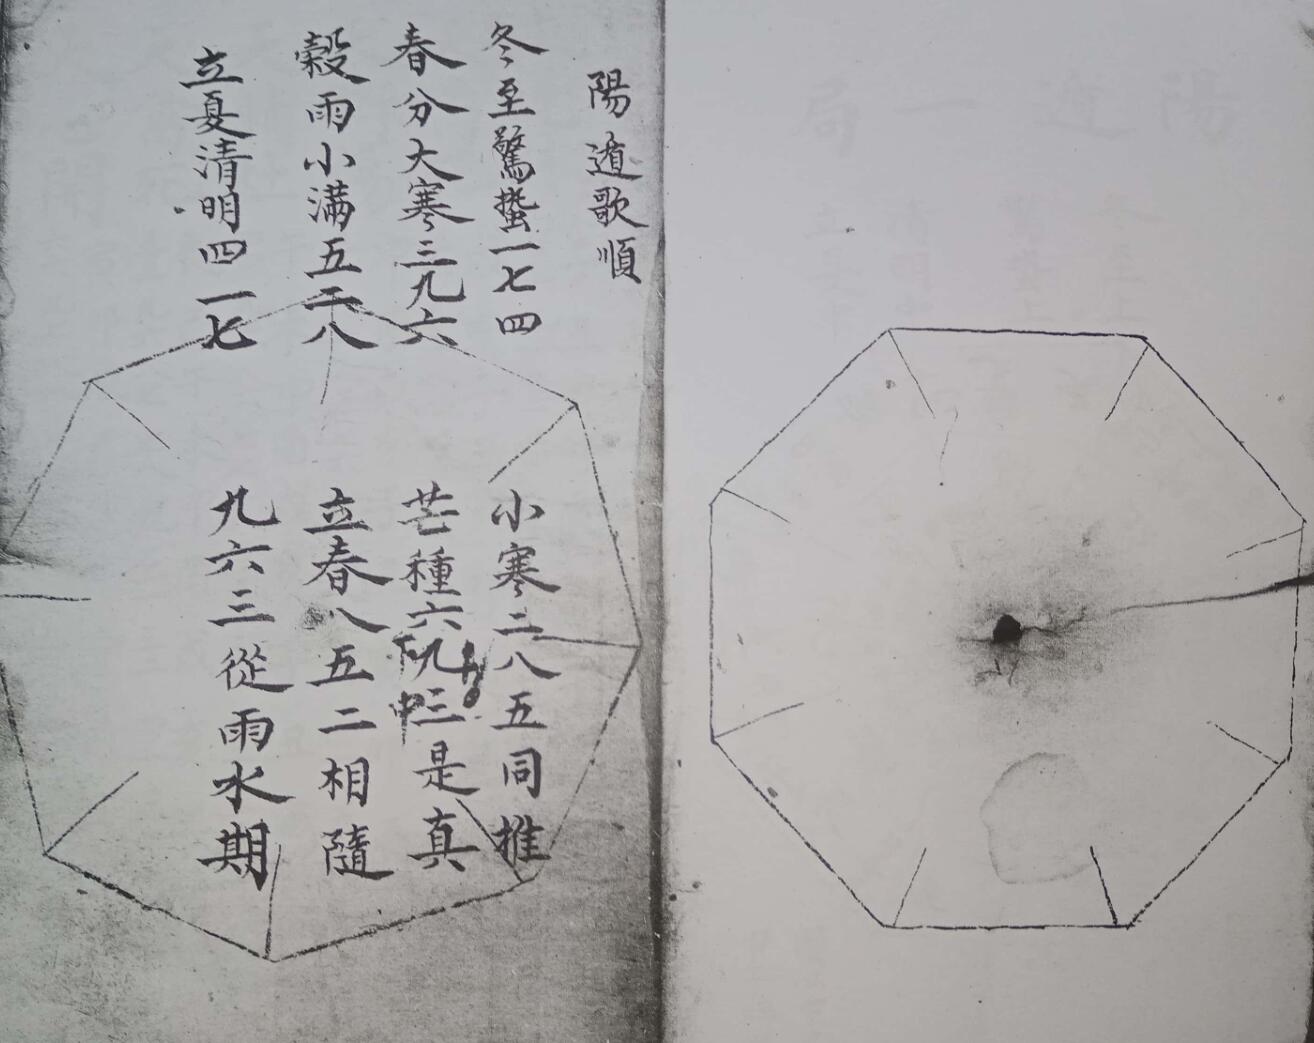 陽遁歌順
冬至驚蟄一七四
小寒二八五同推
春分大寒三九六
芒種六九三是真
下
中
穀雨小滿五二八
立春八五二相隨
立夏清明四一七
九六三從雨水期